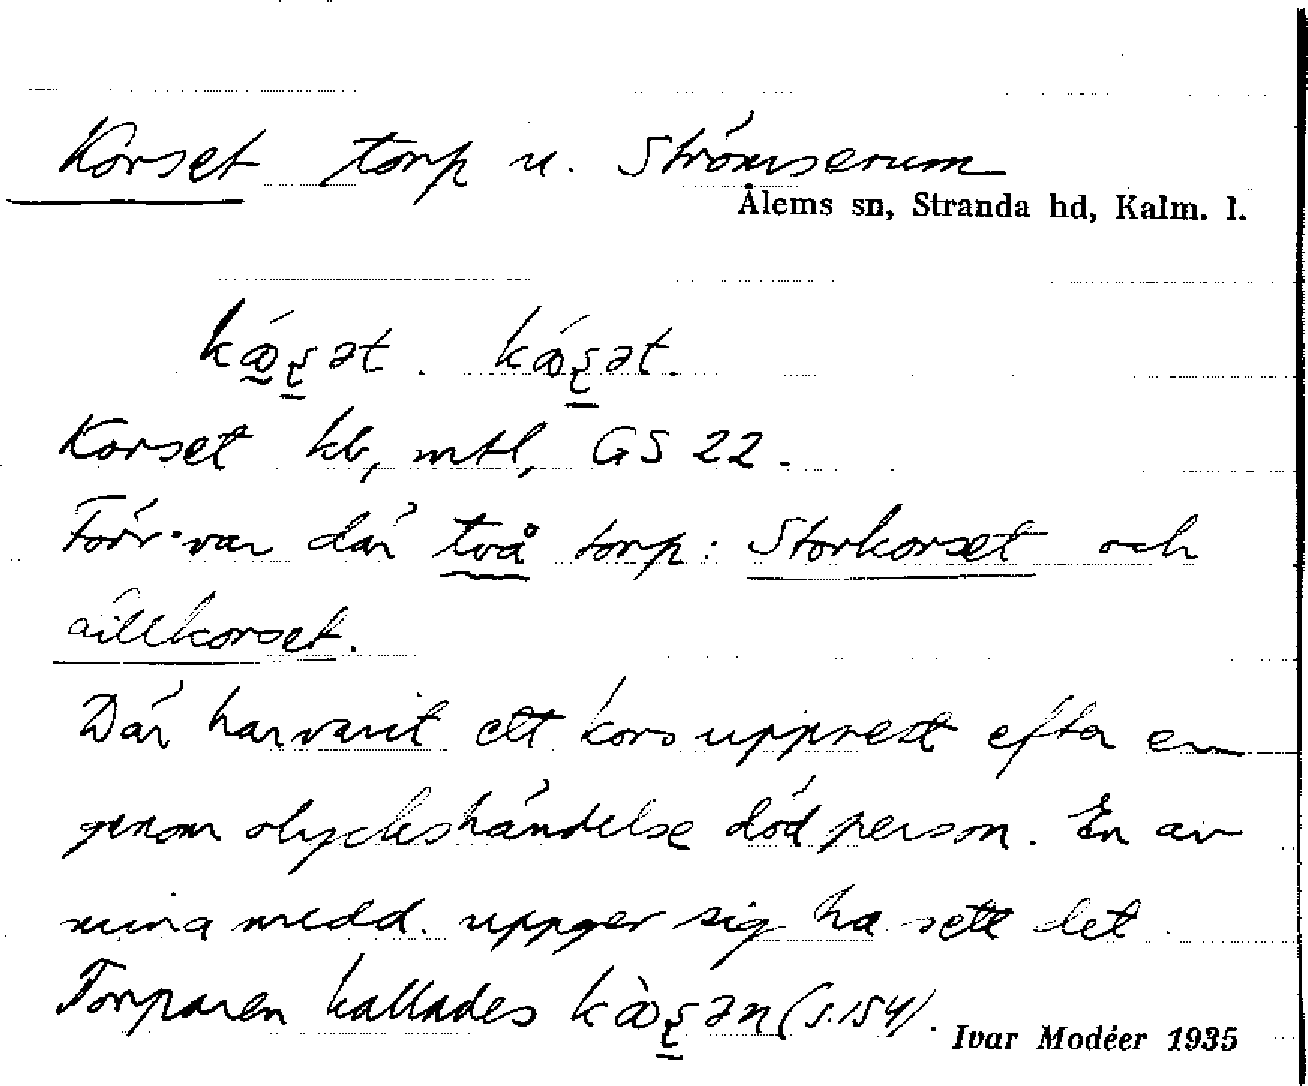 Korset torp u. Strömserum
Ålems sn, Stranda hd, Kalm. l.
kǽʂət. kǽʂət.
Korset kb, mtl, GS 22.
Förr var där två torp: Storkorset och
Lillkorset.
Där har varit ett kors upprest efter en
genom olyckshändelse död person. En av
mina medd. uppger sig ha sett det.
Torparen kallades kæ̀ʂən (s. 154).
Ivar Modéer 1935